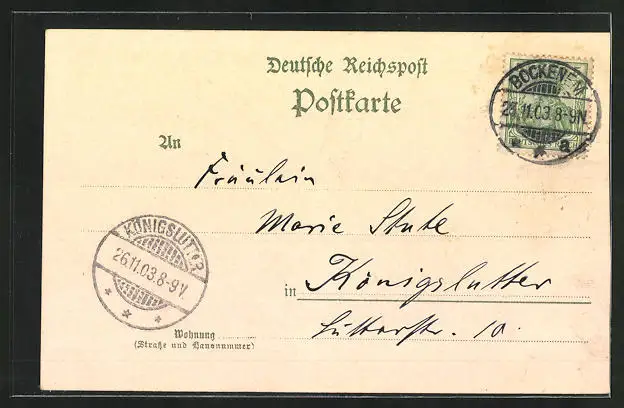 Deutsche Reichspost
Postkarte
BOCKENEM
11.03.8-9N.
a
An
Fräulein
Marie Stute
KÖNIGSLUTTER
26.11.03.8-9V.
in Königslutter
Lutterstr. 10.
Wohnung
(Straße und Hausnummer)